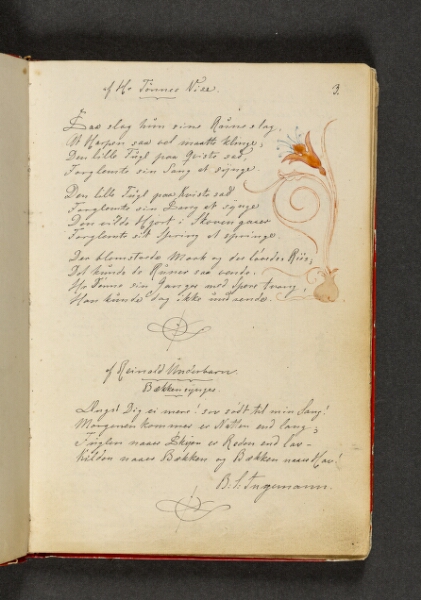 af Hr Tønnes Vise.
3.
Saa slog hün sine Rüneslag,
At Harpen saa vel maatte klinge;
Den lille Fügl paa Qvisto sad,
Forglemte sin Sang at synge.
Den lille Fügl paa Kvisto sad
Forglemte sin Sang at synge
Den vilde Hjort i Skoven gaaer
Forglemte sit Spring at springe.
Den blomstrede Mark og det Riis,
Det künde de Rüner saa vende.
Hr Tønne sin Ganger med Spore tvang,
Han künde dog ikke ündrende.
af Reinald Ünderbarn.
Bækken synger.
Ængst Dig ei mere! sov södt til min Sang!
Morgenen kommer er Natten end lang;
Füglen naaer Skyen er Reden end lav
Kilden naaer Bækken og Bækken naaer Hav!
B. S. Ingemann.